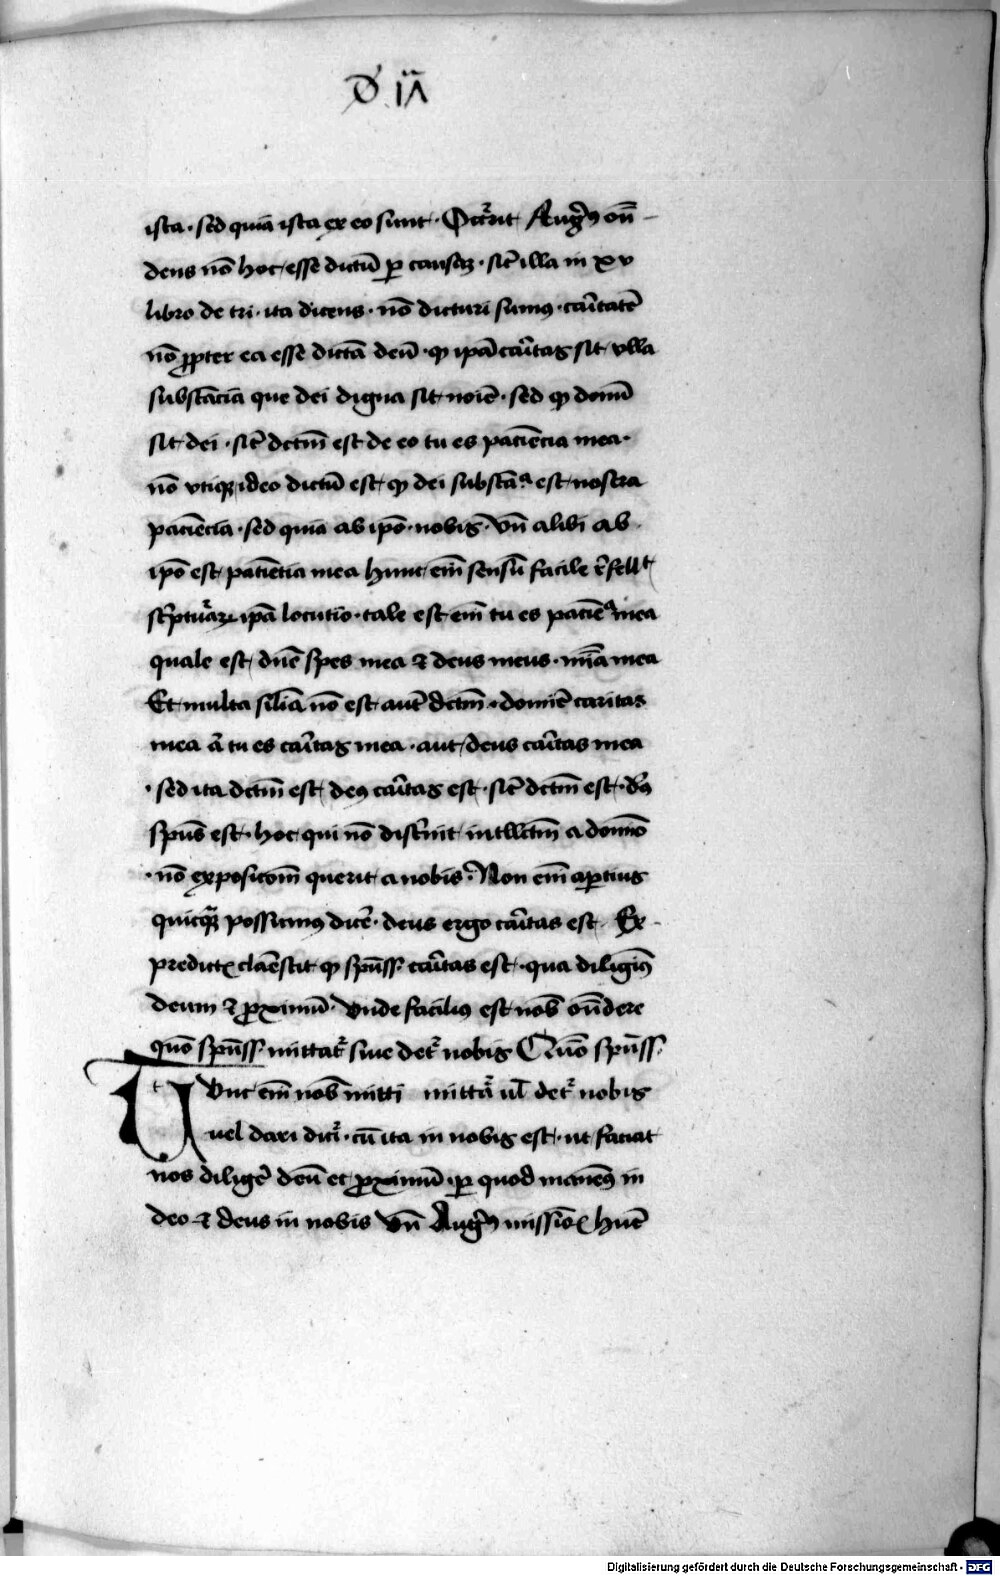 ista · sed quia ista ex eo sunt · Occ̄rit Augꝰ on̄
dens nō hoc esse dictū ꝑ causaꝫ · sic̄ illa in xv
libro de tri · ita dicens · nō dicturi sumꝰ · cāitatē
nō ꝓpter ea esse dictā deū · ꝙ ipā cāitas sit vlla
substācia que dei digna sit noīe · sed ꝙ donū
sit dei · sic̄ dc̄tm̄ est de eo tu es paciēcia mea ·
nō vtiqꝫ ideo dictū est ꝙ dei substāᵃ est nostra
paciēcia · sed quia ab ipō nobis · Vn̄ alibi ab
ipō est patiētia mea hunc em̄ sensū facile r̄fellt
sc̄ptuāꝝ ipā locutio · tale est em̄ tu es paciēᵃ mea
quale est dn̄e spes mea ⁊ deus meus · mīa mea
Et multa siliā nō est autē dc̄tm̄ · domīe caritas
mea ā tu es cāitas mea · aut deus cāitas mea
· sed ita dc̄tm̄ est deꝰ cāitas est · sic̄ dc̄tm̄ est · dꝰ
spūs est · hoc qui nō disc̄nit intllc̄tm̄ a domīo
· nō expositom̄ querit a nobis · Non em̄ aꝑtius
quicq̄ꝫ possumꝰ dicē · deus ergo cāitas est · Ex
predict̄ claēscit ꝙ spūss · cāitas est · qua diligimꝰ
deum ⁊ ꝓximū · Vnde facilius est nob̄ on̄dere
quō spūss · mittat̄ siue det̄ nobis Quō spūss ·
Tvnc em̄ nob̄ mitti mittā̄ ul̄ det̄ nobis
uel dari dic̄i · cū ita in nobis est · ut faciat
nos diligē deū et ꝓximū ꝑ quod manemꝰ in
deo ⁊ deus in nobis Vn̄ Augꝰ missiōꝭ hūc̄
Digitalisierung gefördert durch die Deutsche Forschungsgemeinschaft - DFG